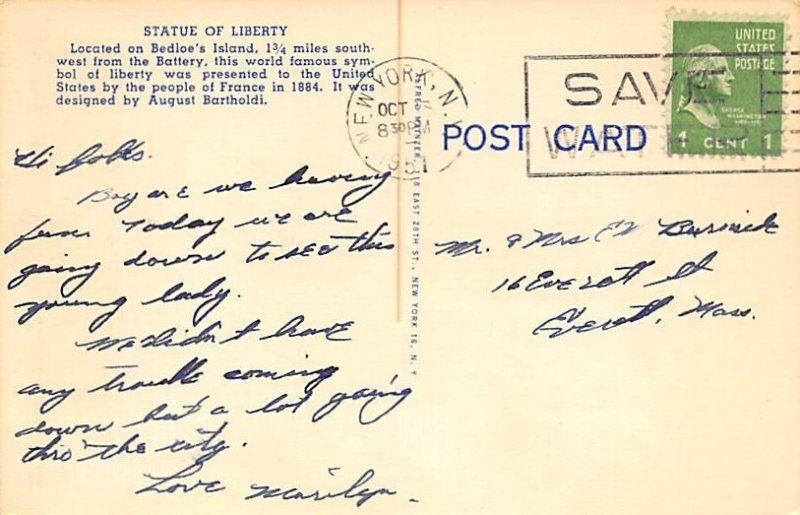 STATUE OF LIBERTY
Located on Bedloe's Island, 1¾ miles south-
west from the Battery, this world famous sym-
bol of liberty was presented to the United
States by the people of France in 1884. It was
designed by August Bartholdi.
Hi folks.
Boy are we having
fun. Today we are
going down to see this
young lady.
We didn't have
any trouble coming
down but a lot going
thro' the city.
Love Marilyn.
ALFRED MAINZER, 118 EAST 28TH ST., NEW YORK 16, N. Y
NEW YORK, N.Y.
OCT
830PM
1951
POST CARD
SAVE
WAT
UNITED
STATES
POSTAGE
GEORGE
WASHINGTON
1 CENT 1
Mr. & Mrs E.W.
16 Everett St
Everett, Mass.